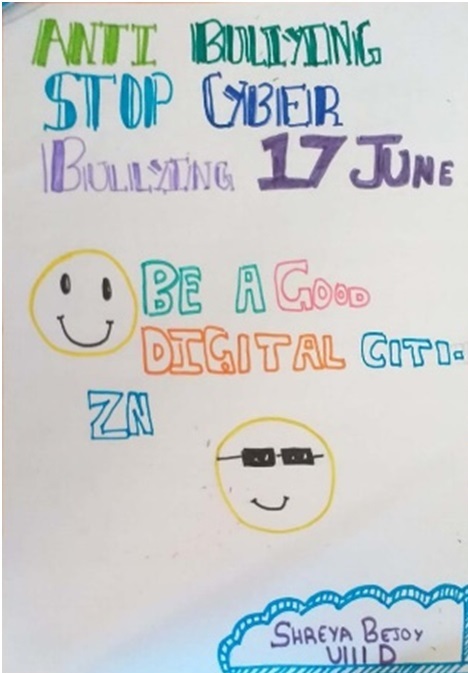 ANTI BULLYING
STOP CYBER
BULLYING 17 JUNE
BE A GOOD
DIGITAL CITI-
ZN
SHREYA BEJOY
VIII D